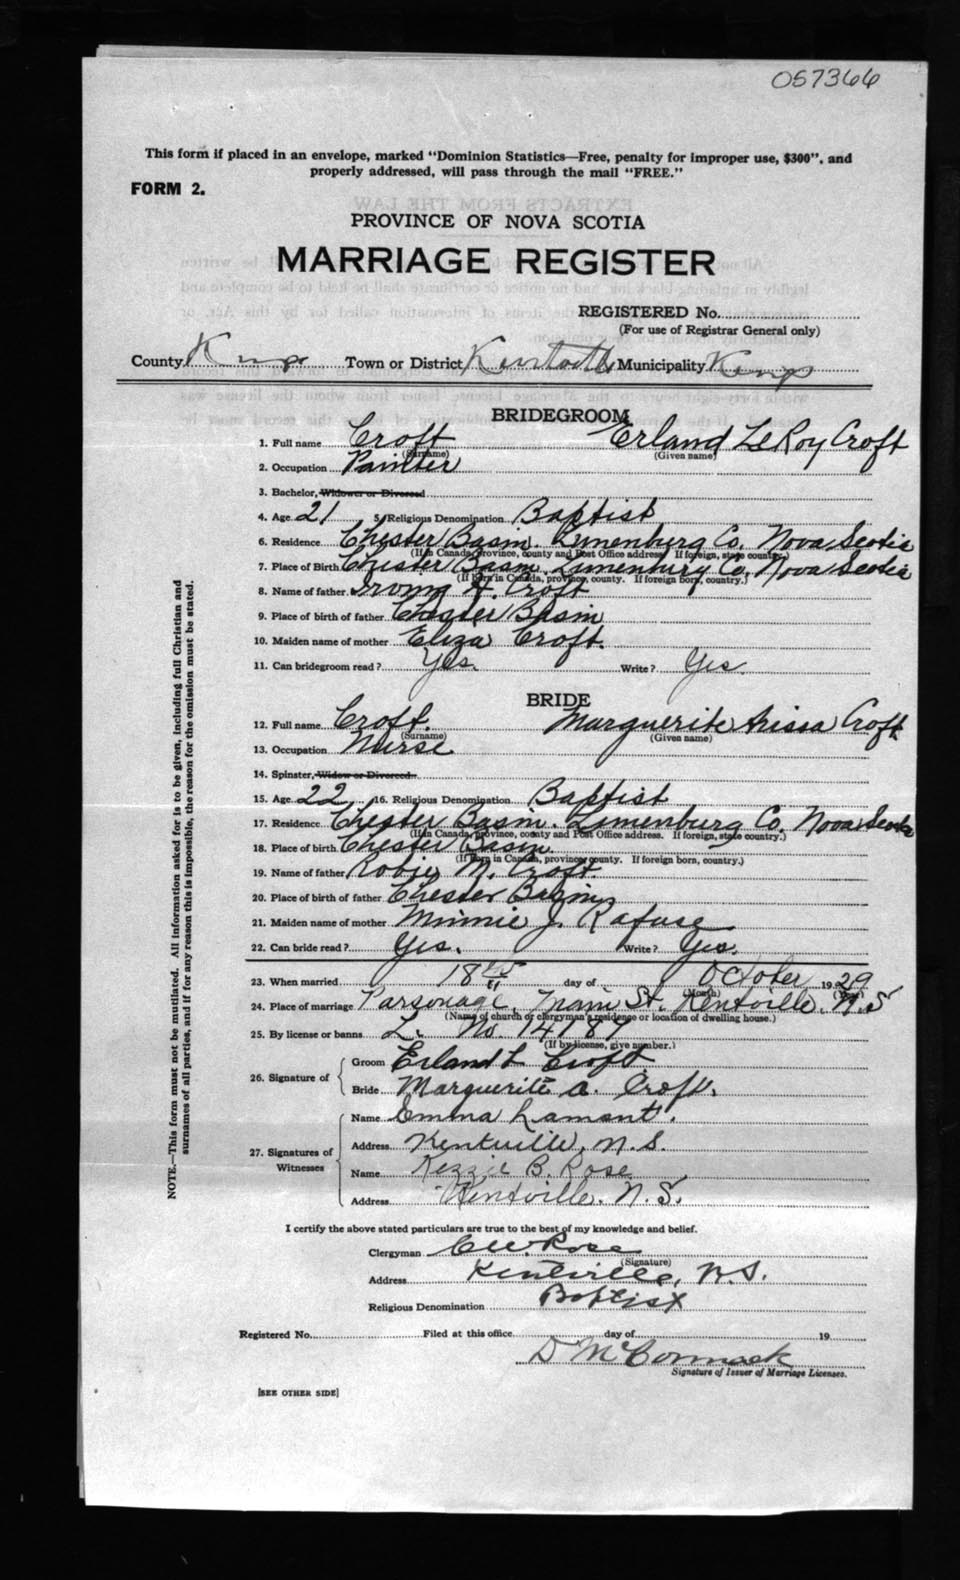 057366
This form if placed in an envelope, marked "Dominion Statistics—Free, penalty for improper use, $300", and
properly addressed, will pass through the mail "FREE."
FORM 2.
PROVINCE OF NOVA SCOTIA
MARRIAGE REGISTER
REGISTERED No.
(For use of Registrar General only)
County Kings Town or District Kentville Municipality Kings
BRIDEGROOM
1. Full name Croft Erland LeRoy Croft
(Surname) (Given name)
2. Occupation Painter
3. Bachelor, Widower or Divorced
4. Age 21 5. Religious Denomination Baptist
6. Residence Chester Basin. Lunenburg Co. Nova Scotia
(If in Canada, province, county and Post Office address. If foreign, state country.)
7. Place of Birth Chester Basin Lunenburg Co. Nova Scotia
(If born in Canada, province, county. If foreign born, country.)
8. Name of father H. Croft
9. Place of birth of father Chester Basin
10. Maiden name of mother Eliza Croft.
11. Can bridegroom read? Yes. Write? Yes.
BRIDE
12. Full name Croft. Marguerite Croft
(Surname) (Given name)
13. Occupation Nurse
14. Spinster, Widow or Divorced
15. Age 22 16. Religious Denomination Baptist
17. Residence Chester Basin. Lunenburg Co. Nova Scotia
(If in Canada, province, county and Post Office address. If foreign, state country.)
18. Place of birth Chester Basin
(If born in Canada, province, county. If foreign born, country.)
19. Name of father Robie N. Croft
20. Place of birth of father Chester Basin
21. Maiden name of mother Minnie J. Rafuse
22. Can bride read? Yes. Write? Yes.
23. When married 18th day of October 1929
(Month) (Year)
24. Place of marriage Parsonage, Main St. Kentville. N.S
(Name of church or clergyman's residence or location of dwelling house.)
25. By license or banns L. No. 14187
(If by license, give number.)
26. Signature of Groom Erland L Croft.
Bride Marguerite A. Croft.
27. Signatures of Witnesses Name Emma Lamont.
Address Kentville, N.S.
Name Kezzie B. Rose
Address Kentville. N.S.
I certify the above stated particulars are true to the best of my knowledge and belief.
Clergyman C.W. Rose
(Signature)
Address Kentville, N.S.
Religious Denomination Baptist
Registered No. Filed at this office day of 19
D McCormack
Signature of Issuer of Marriage Licenses.
[SEE OTHER SIDE]
NOTE.—This form must not be mutilated. All information asked for is to be given, including full Christian and
surnames of all parties, and if for any reason this is impossible, the reason for the omission must be stated.